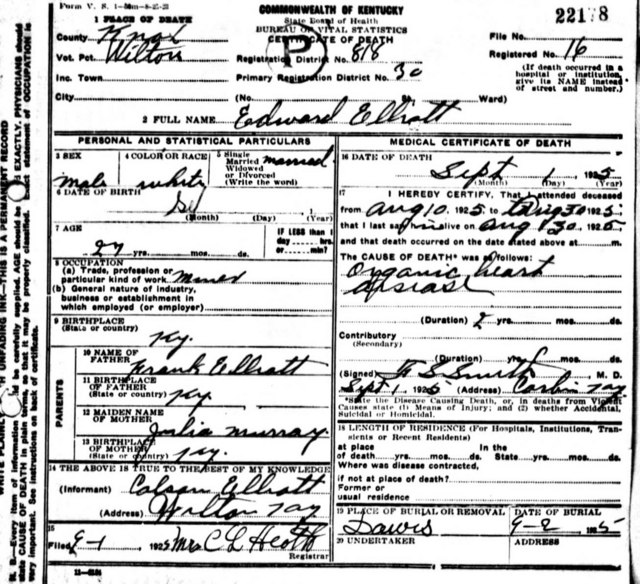 Form V. S. 1
COMMONWEALTH OF KENTUCKY
State Board of Health
BUREAU OF VITAL STATISTICS
CERTIFICATE OF DEATH
22178
1 PLACE OF DEATH
County Knox
File No.
Vot. Pct. Wilton
Registration District No. 818
Registered No. 16
Inc. Town
Primary Registration District No. 30
(If death occurred in a hospital or institution, give its NAME instead of street and number.)
City (No. St. Ward)
2 FULL NAME Edward Elliott
PERSONAL AND STATISTICAL PARTICULARS
3 SEX male
4 COLOR OR RACE white
5 Single Married Widowed or Divorced (Write the word) married
6 DATE OF BIRTH
(Month) (Day) (Year)
7 AGE
27 yrs. mos. ds.
IF LESS than 1 day hrs. or min.
8 OCCUPATION
(a) Trade, profession or particular kind of work miner
(b) General nature of industry, business or establishment in which employed (or employer)
9 BIRTHPLACE
(State or country) Ky.
PARENTS
10 NAME OF FATHER Frank Elliott
11 BIRTHPLACE OF FATHER (State or country) Ky
12 MAIDEN NAME OF MOTHER Julia Murray
13 BIRTHPLACE OF MOTHER (State or country) Ky.
14 THE ABOVE IS TRUE TO THE BEST OF MY KNOWLEDGE
(Informant) Colson Elliott
(Address) Wilton Ky
15
Filed 9-1 1925 Mrs C L Heath
Registrar
MEDICAL CERTIFICATE OF DEATH
16 DATE OF DEATH
Sept 1, 1925
(Month) (Day) (Year)
17 I HEREBY CERTIFY, That I attended deceased
from Aug 10 1925 to Aug 30 1925
that I last saw him alive on Aug 30 1925
and that death occurred on the date stated above at m.
The CAUSE OF DEATH* was as follows:
Organic heart
disease
(Duration) 2 yrs. mos. ds.
Contributory
(Secondary)
(Duration) yrs. mos. ds.
(Signed) Smith M. D.
Sept 1 1925 (Address) Corbin Ky
*State the Disease Causing Death, or, in deaths from Violent Causes state (1) Means of Injury; and (2) whether Accidental, Suicidal or Homicidal.
18 LENGTH OF RESIDENCE (For Hospitals, Institutions, Transients or Recent Residents)
At place of death yrs. mos. ds. In the State yrs. mos. ds.
Where was disease contracted,
if not at place of death?
Former or
usual residence
19 PLACE OF BURIAL OR REMOVAL Davis
DATE OF BURIAL 9-2 1925
20 UNDERTAKER
ADDRESS